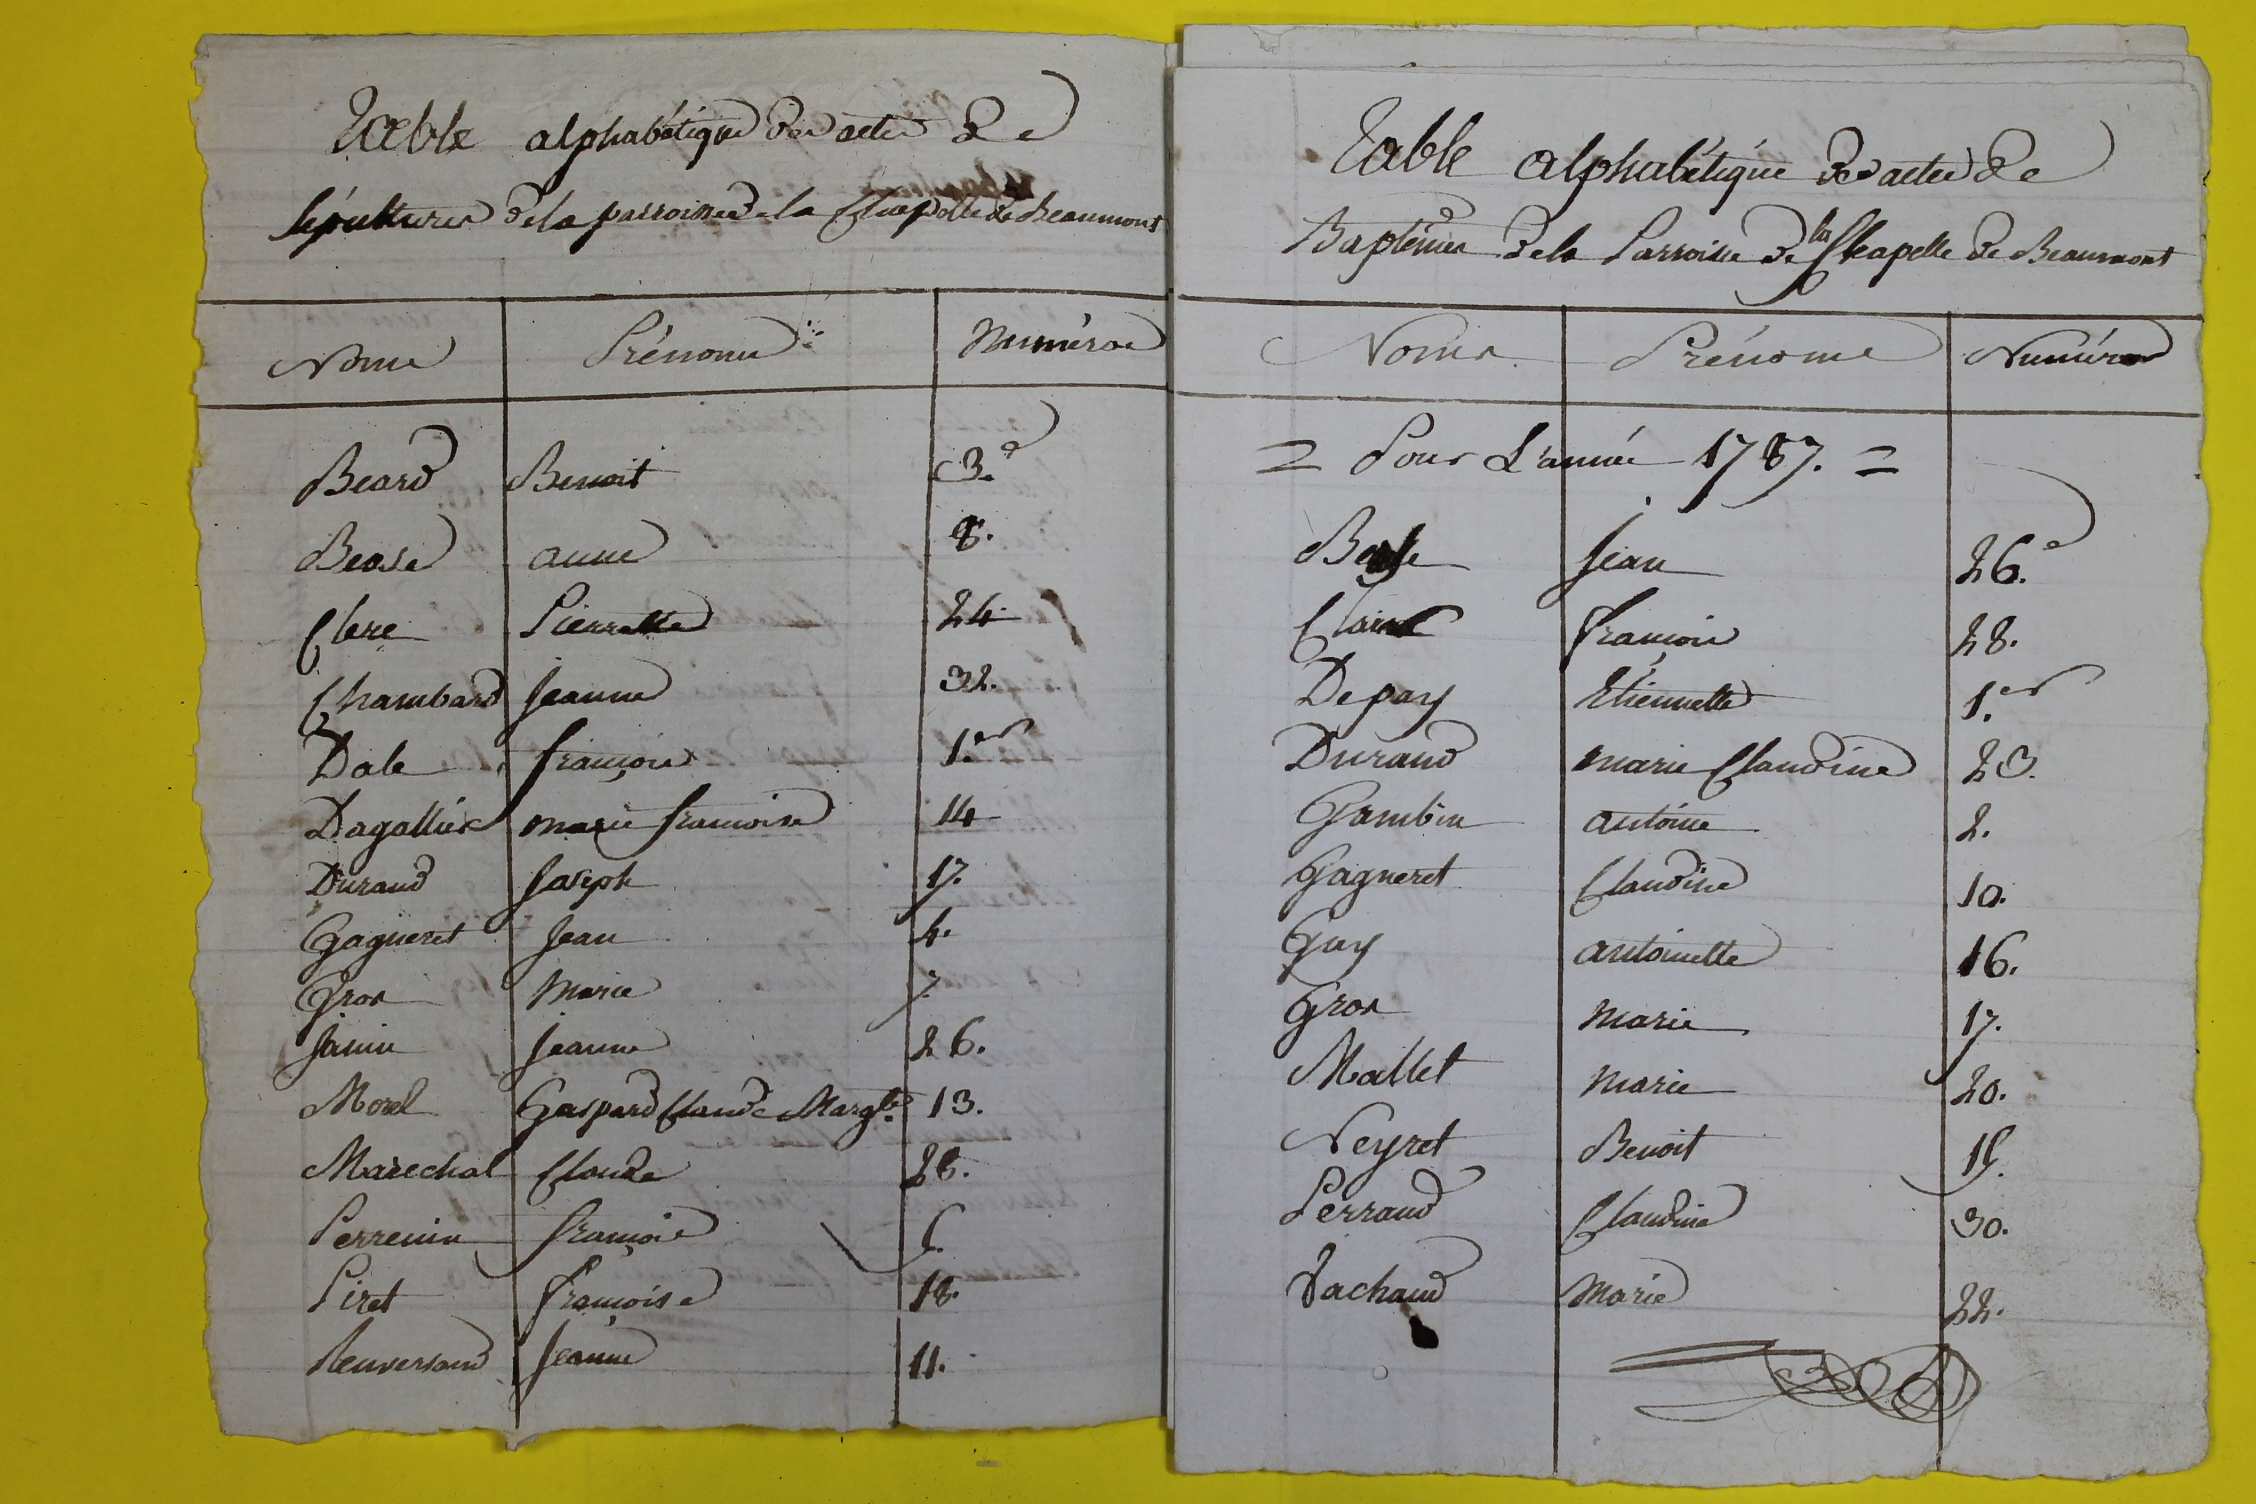 Table alphabétique des actes de
sépultures de la parroisse de la Chapelle de Beaumont
Noms Prénoms Numéros
Beard Benoit 3.e
Beose anne 8.
Clere Pierrette 24
Chambard Jeanne 32.
Dale françois 1.er
Dagallier marie francoise 14
Durand Joseph 17.
Gagneret Jean 4.
Gros Marie 7.
Janin Jeanne 26.
Morel Gaspard Claude Margte. 13.
Marechal Claude 28.
Perrenin françois
Piret françoise 18.
Jeanne 11.
Table alphabétique des actes de
Baptêmes de la Parroisse de la Chapelle de Beaumont
Noms Prénoms Numéros
= Pour L'année 1787. =
Jean 26.e
françois 28.
Depay Etiennette 1.er
Durand marie Claudine 23.
Gambin antoine 2.
Gagneret Claudine 10.
Guy antoinette 16.
Gros Marie 17.
Mallet Marie 20.
Neyret Benoit 15.
Perraud Claudine 30.
Vachaud Marie 22.